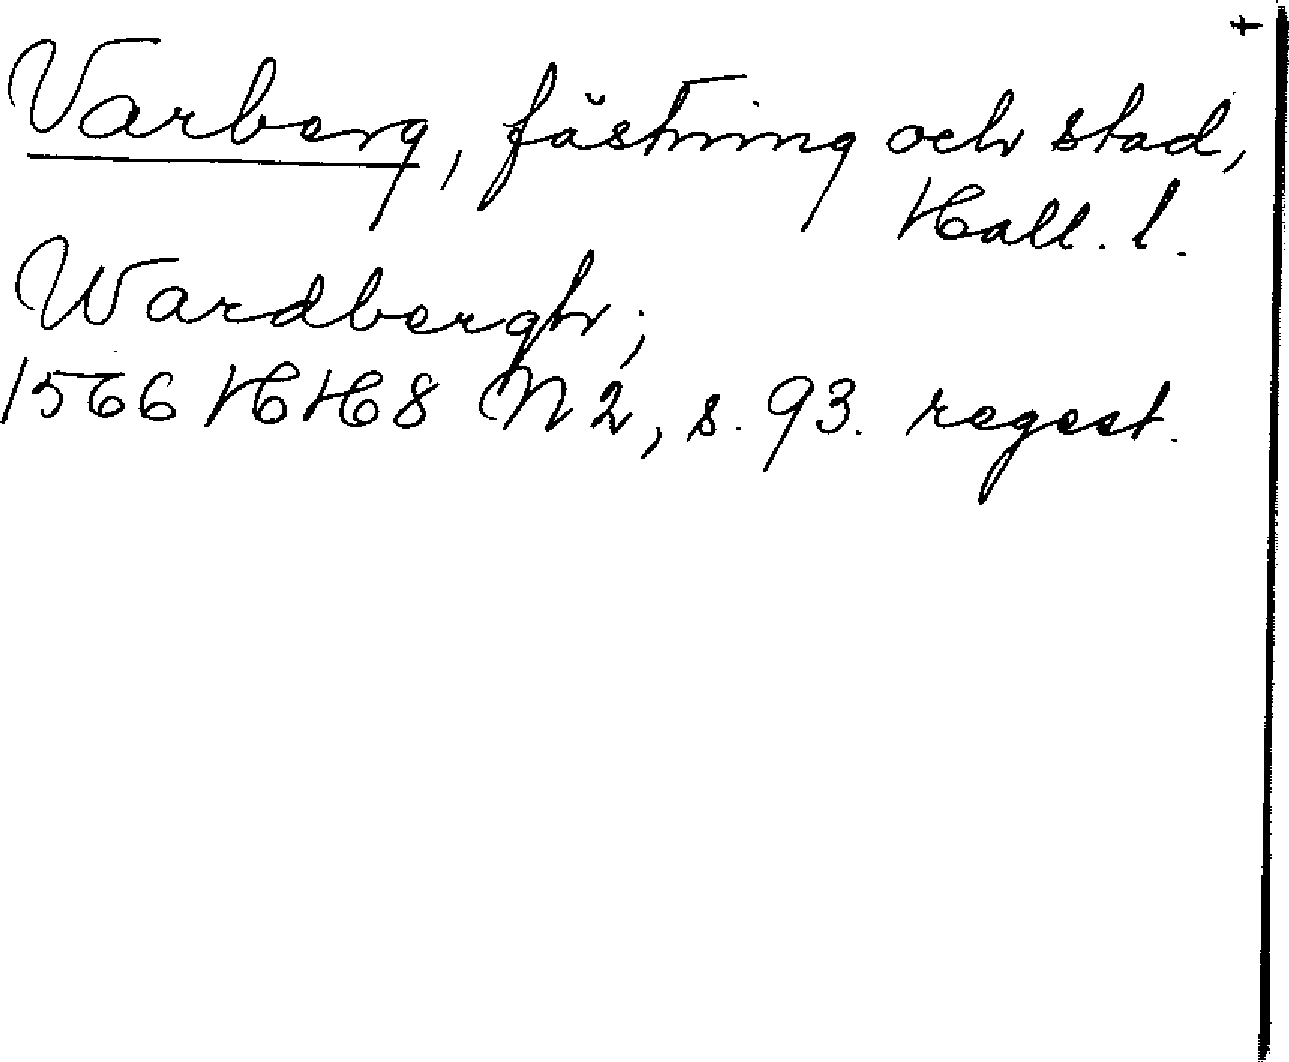 Varberg, fästning och stad,
Hall. l.
Wardbergh;
1566 HH8 N2, s. 93. regest.